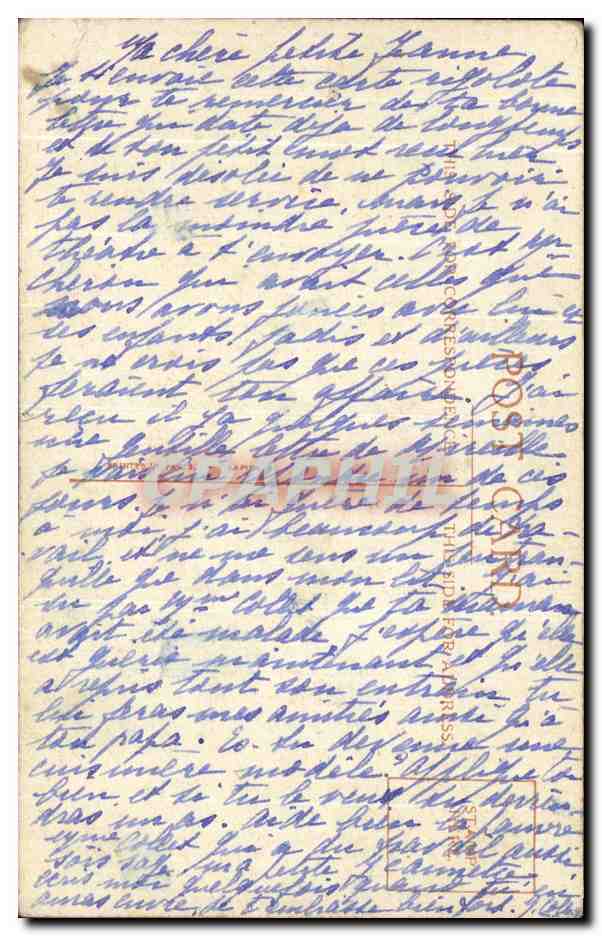 Ma chère petite Jeanne
Je t'envoie cette carte rigolote
pour te remercier de ta bonne
lettre qui date déjà de longtemps
et de ton petit mot
Je suis désolée de ne pouvoir
te rendre service. n'ai
pas la moindre pièce de
théâtre à t'envoyer. C'est
qui avait celles que
nous avons jouées avec
ses enfants jadis et d'ailleurs
je ne crois pas que ces pièces
feraient ton affaire. J'ai
reçu il y a quelques semaines
une gentille lettre de
je un de ces
jours.
à moi, j'ai beaucoup de tra
vail et ne me sens un peu tran
quille que dans mon lit. J'ai
su par Mme Collet que ta maman
avait été malade. J'espère qu'elle
est guérie maintenant et qu'elle
a repris tout son entrain. Tu
lui feras mes amitiés ainsi qu'à
ton papa. Es-tu devenue une
cuisinière modèle? Applique toi
bien et si tu le veux tu devien
dras un as. Aide bien la pauvre
Mme Collet qui a du travail aussi
sois sage ma petite Jeannette
écris moi quelquefois quand tu en
auras envie. Je t'embrasse bien fort.
POST CARD
THIS SIDE FOR CORRESPONDENCE
THIS SIDE FOR ADDRESS
STAMP
HERE
CPAPHIL